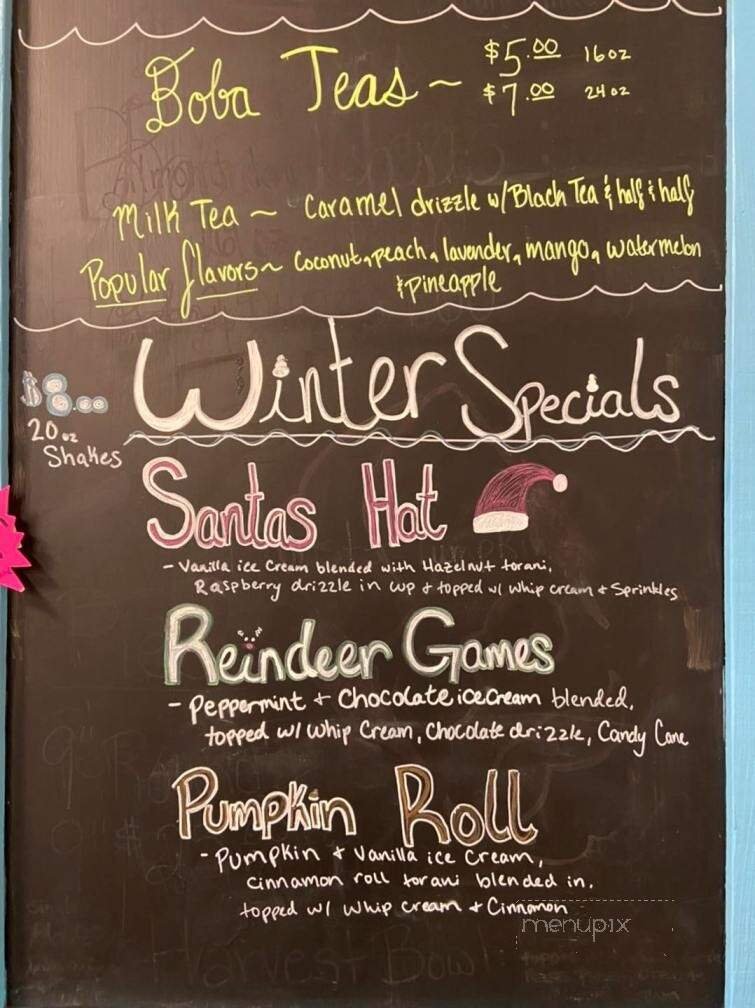 Boba Teas ~ $5.00 16oz
$7.00 24oz
Milk Tea ~ Caramel drizzle w/ Black Tea & half & half
Popular flavors ~ Coconut, peach, lavender, mango, watermelon
& pineapple
Winter Specials
$8.00
20oz
Shakes
Santas Hat
- Vanilla ice cream blended with Hazelnut torani,
Raspberry drizzle in cup & topped w/ whip cream & Sprinkles
Reindeer Games
- Peppermint & Chocolate ice cream blended,
topped w/ Whip Cream, Chocolate drizzle, Candy Cane
Pumpkin Roll
- Pumpkin & Vanilla ice cream,
cinnamon roll torani blended in,
topped w/ whip cream & Cinnamon
menupix
Harvest Bowl